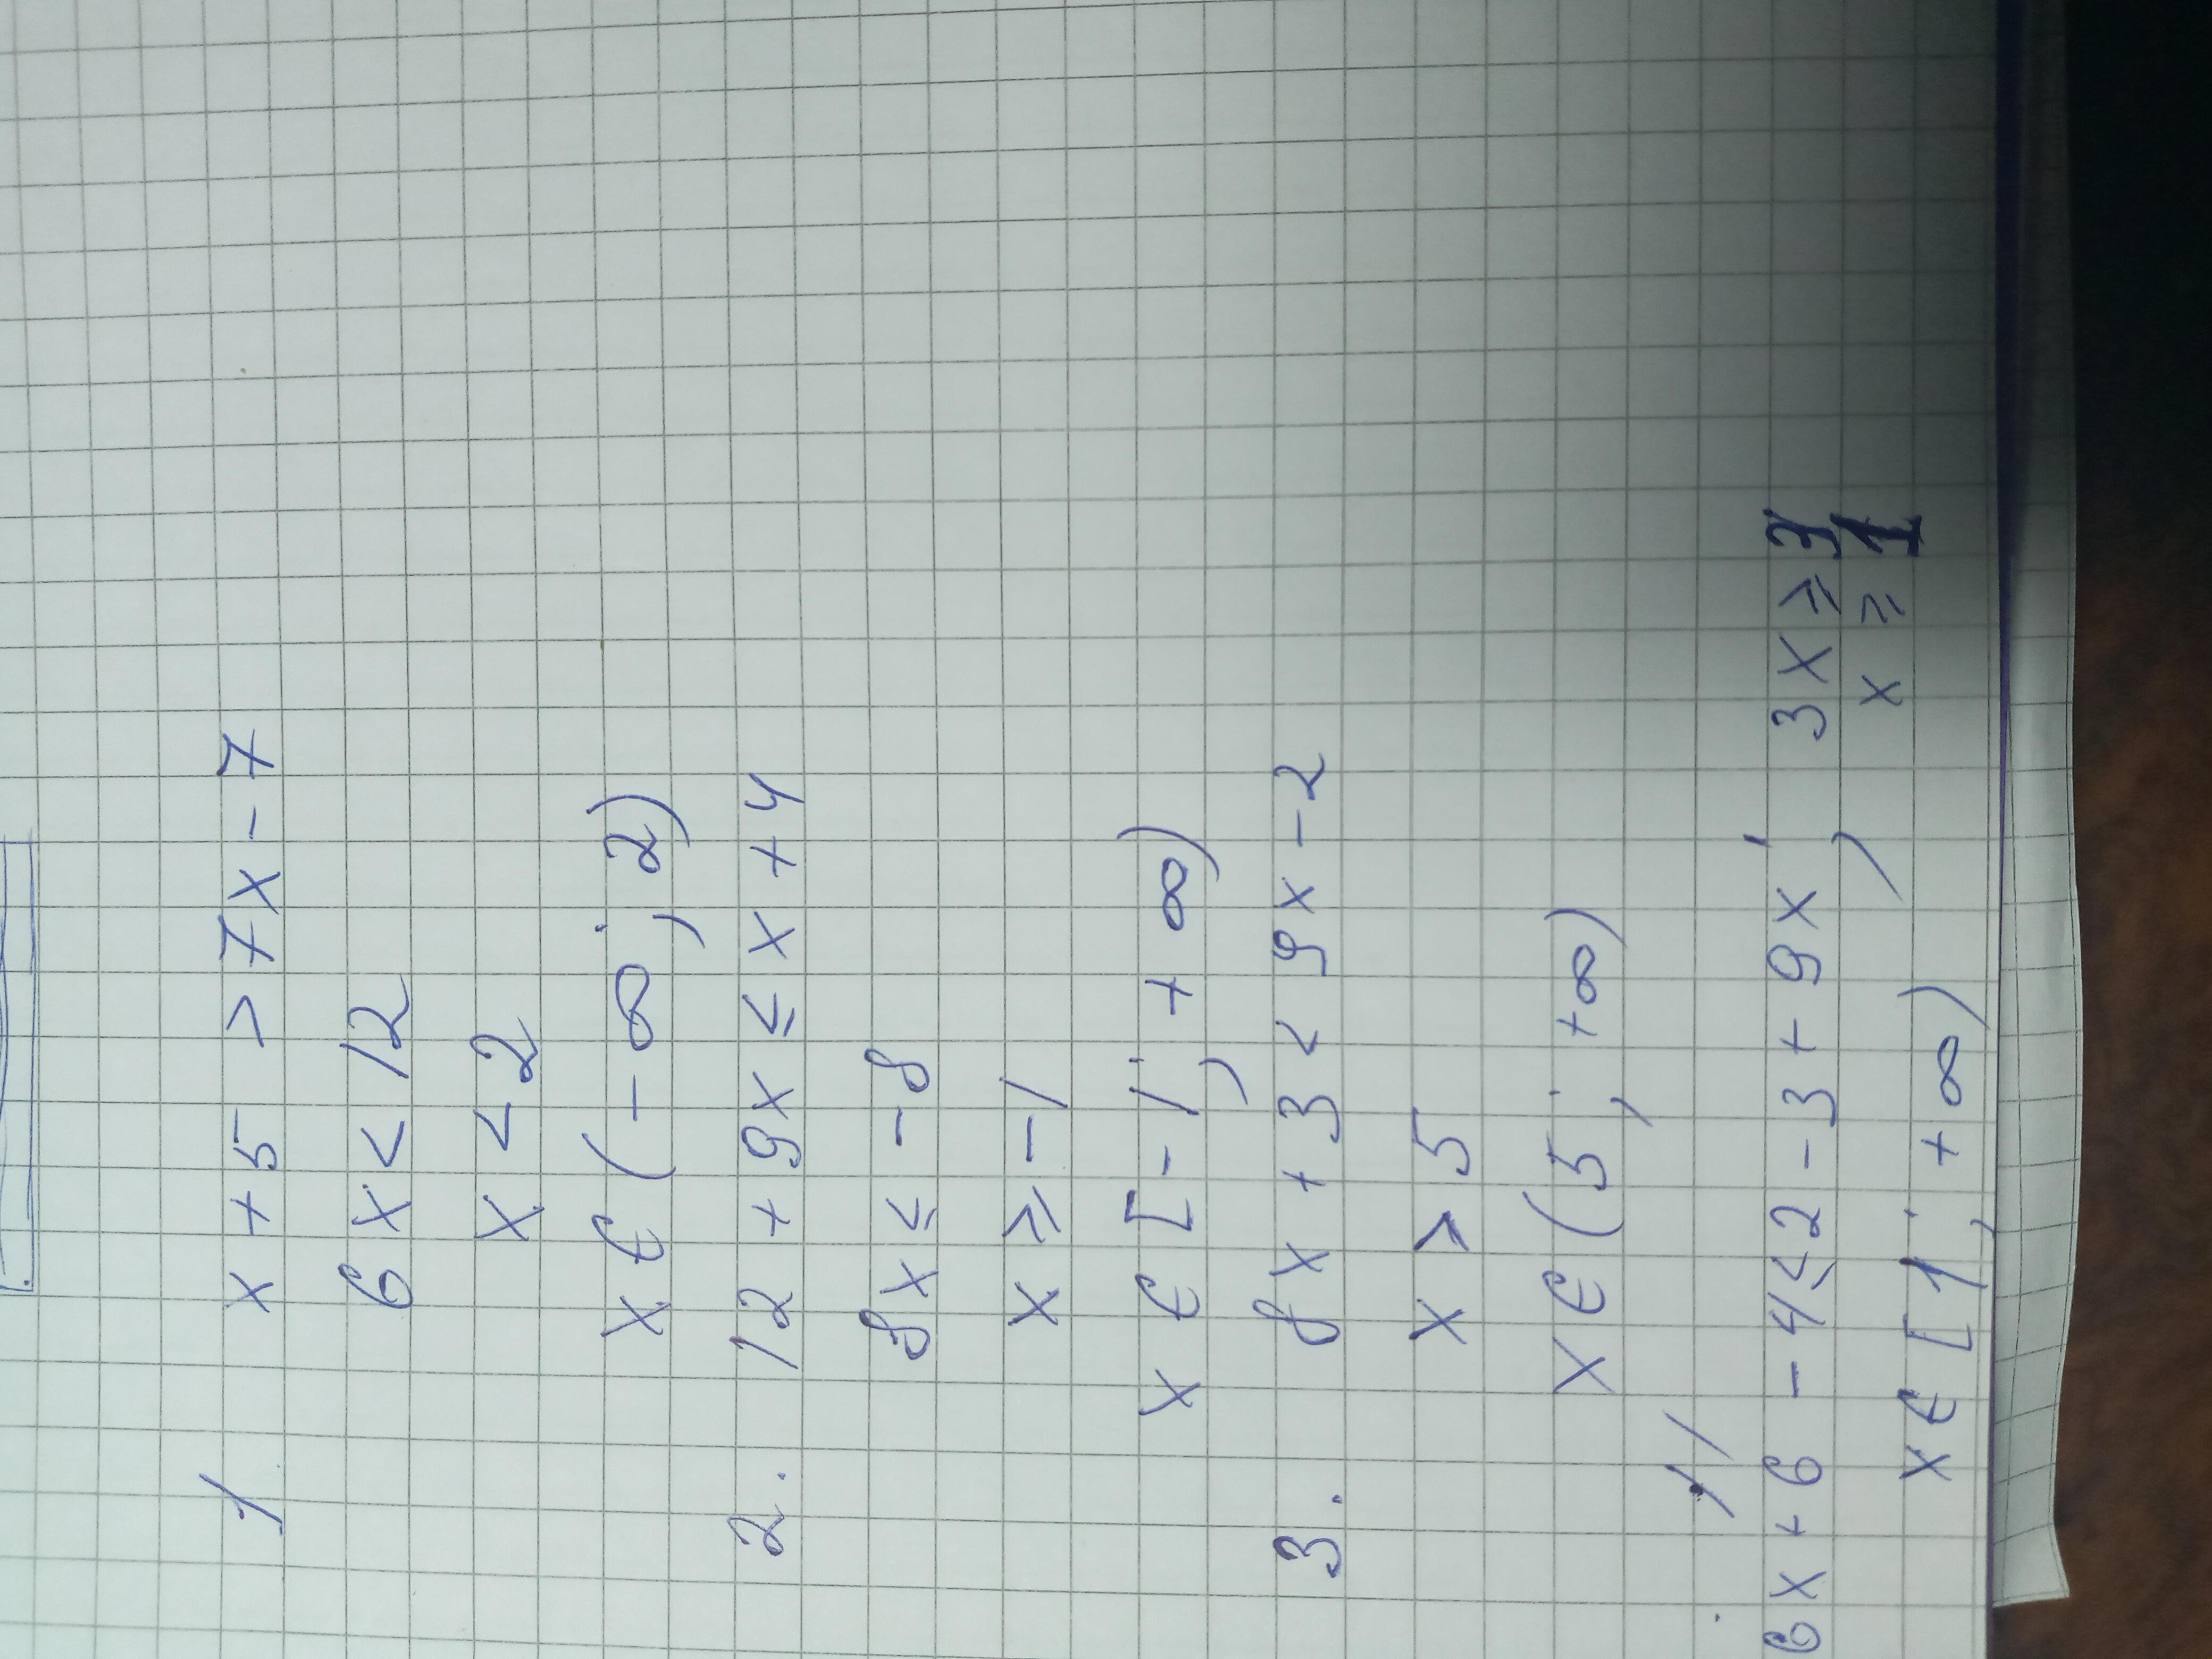 1 x + 5 > 7x - 7
6x < 12
x < 2
x ∈ (-∞; 2)
2. 12 + 9x ≤ x + 4
8x ≤ -8
x ≥ -1
x ∈ [-1; +∞)
3. 8x + 3 < 9x - 2
x > 5
x ∈ (5; +∞)
6x + 6 - 4 ≤ 2 - 3 + 9x; 3x ≥ 3
x ≥ 1
x ∈ [1; +∞)